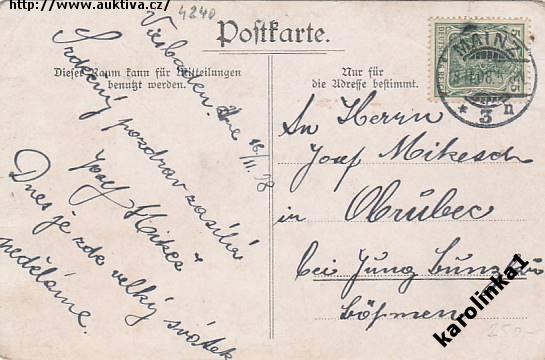 http://www.auktiva.cz/
4240
Postkarte.
Dieser Raum kann für Mitteilungen
benutzt werden.
Nur für
die Adresse bestimmt.
MAINZ
* 3 n
Wiesbaden. Dne 16/II. 08
Srdečný pozdrav zasílá
Josef Mikeš
Dnes je zde velký svátek
neděláme.
An Herrn
Josef Mikesch
in Obrubec
bei Jung Bunzlau
Böhmen
karolinka1
250.-